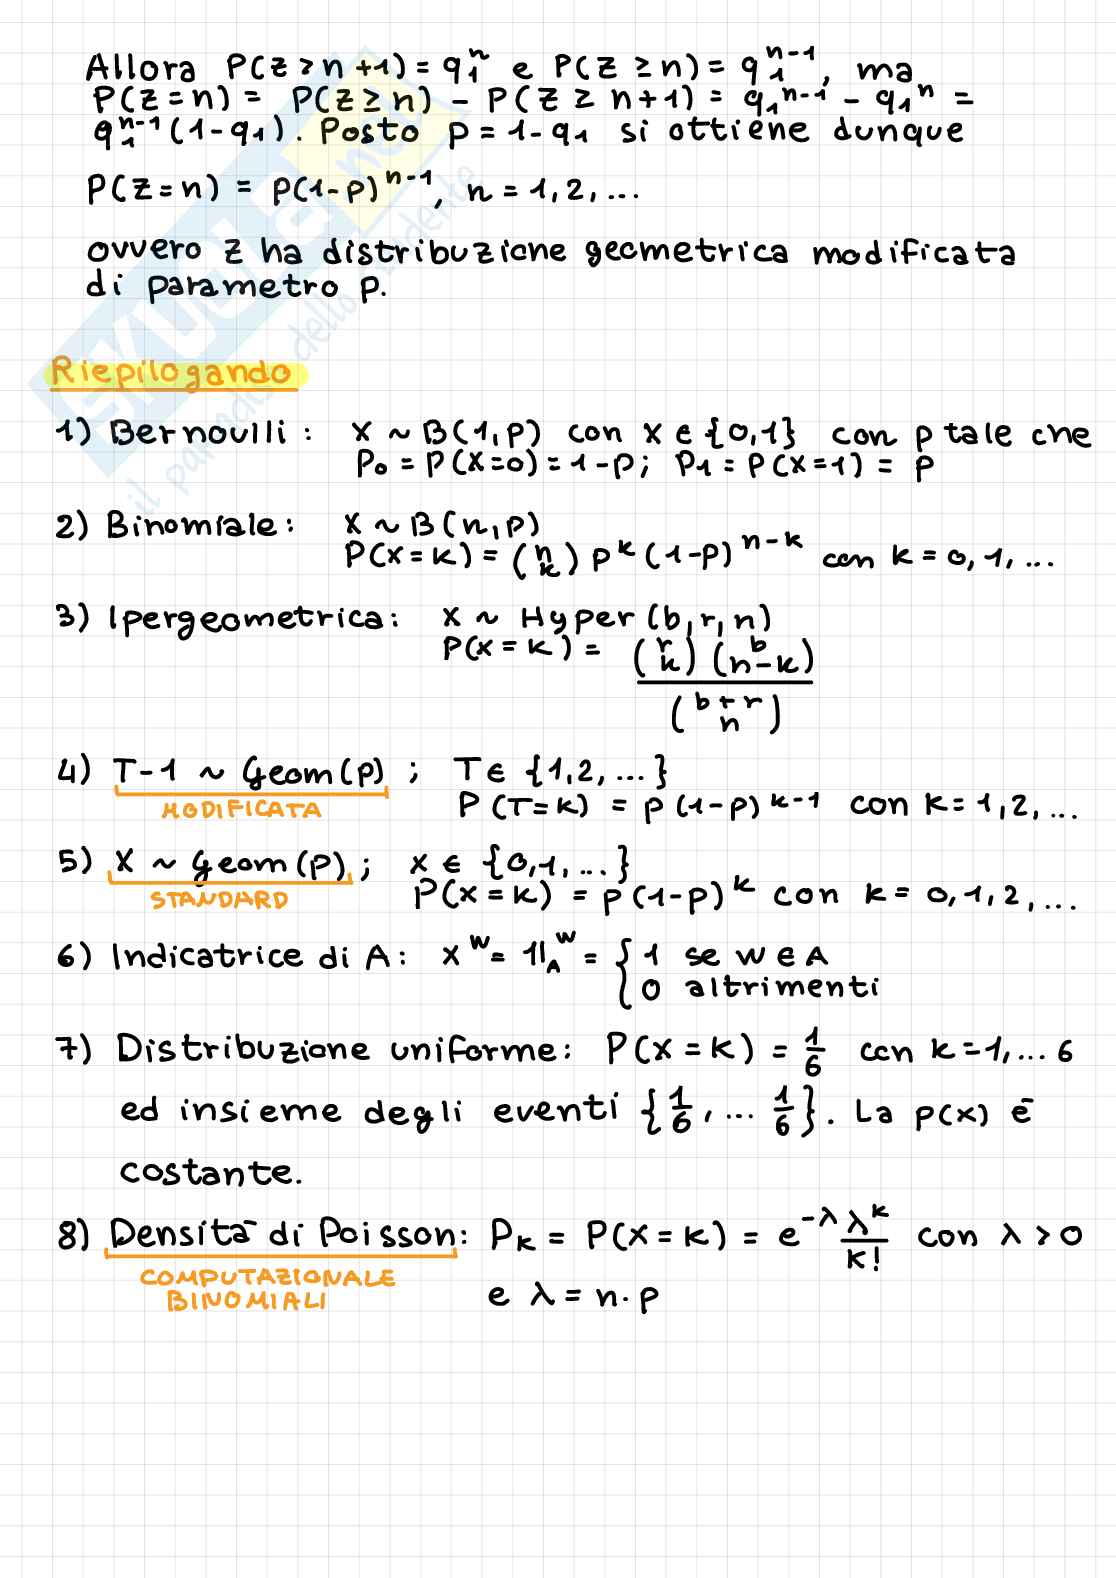 Allora P(Z ≥ n+1) = q₁ⁿ e P(Z ≥ n) = q₁ⁿ⁻¹, ma
P(Z=n) = P(Z ≥ n) - P(Z ≥ n+1) = q₁ⁿ⁻¹ - q₁ⁿ =
q₁ⁿ⁻¹(1-q₁). Posto p = 1-q₁ si ottiene dunque
P(Z=n) = p(1-p)ⁿ⁻¹, n = 1, 2, ...
ovvero Z ha distribuzione geometrica modificata
di parametro p.
Riepilogando
1) Bernoulli: X ~ B(1,p) con X ∈ {0,1} con p tale che
P₀ = P(X=0) = 1-p; P₁ = P(X=1) = p
2) Binomiale: X ~ B(n,p)
P(X=k) = (n k) p^k (1-p)^(n-k) con k = 0, 1, ...
3) Ipergeometrica: X ~ Hyper(b,r,n)
P(X=k) = (r k) (b n-k) / (b+r n)
4) T-1 ~ Geom(p); T ∈ {1,2,...}
MODIFICATA P(T=k) = p(1-p)^(k-1) con k = 1, 2, ...
5) X ~ Geom(p); X ∈ {0,1,...}
STANDARD P(X=k) = p(1-p)^k con k = 0, 1, 2, ...
6) Indicatrice di A: X^w = 1l_A^w = { 1 se w ∈ A
0 altrimenti
7) Distribuzione uniforme: P(X=k) = 1/6 con k=1,... 6
ed insieme degli eventi {1/6, ... 1/6}. La p(x) è
costante.
8) Densità di Poisson: P_k = P(X=k) = e^(-λ) λ^k / k! con λ > 0
COMPUTAZIONALE
BINOMIALI
e λ = n·p
SKUOLA.net
il paradiso dello studente